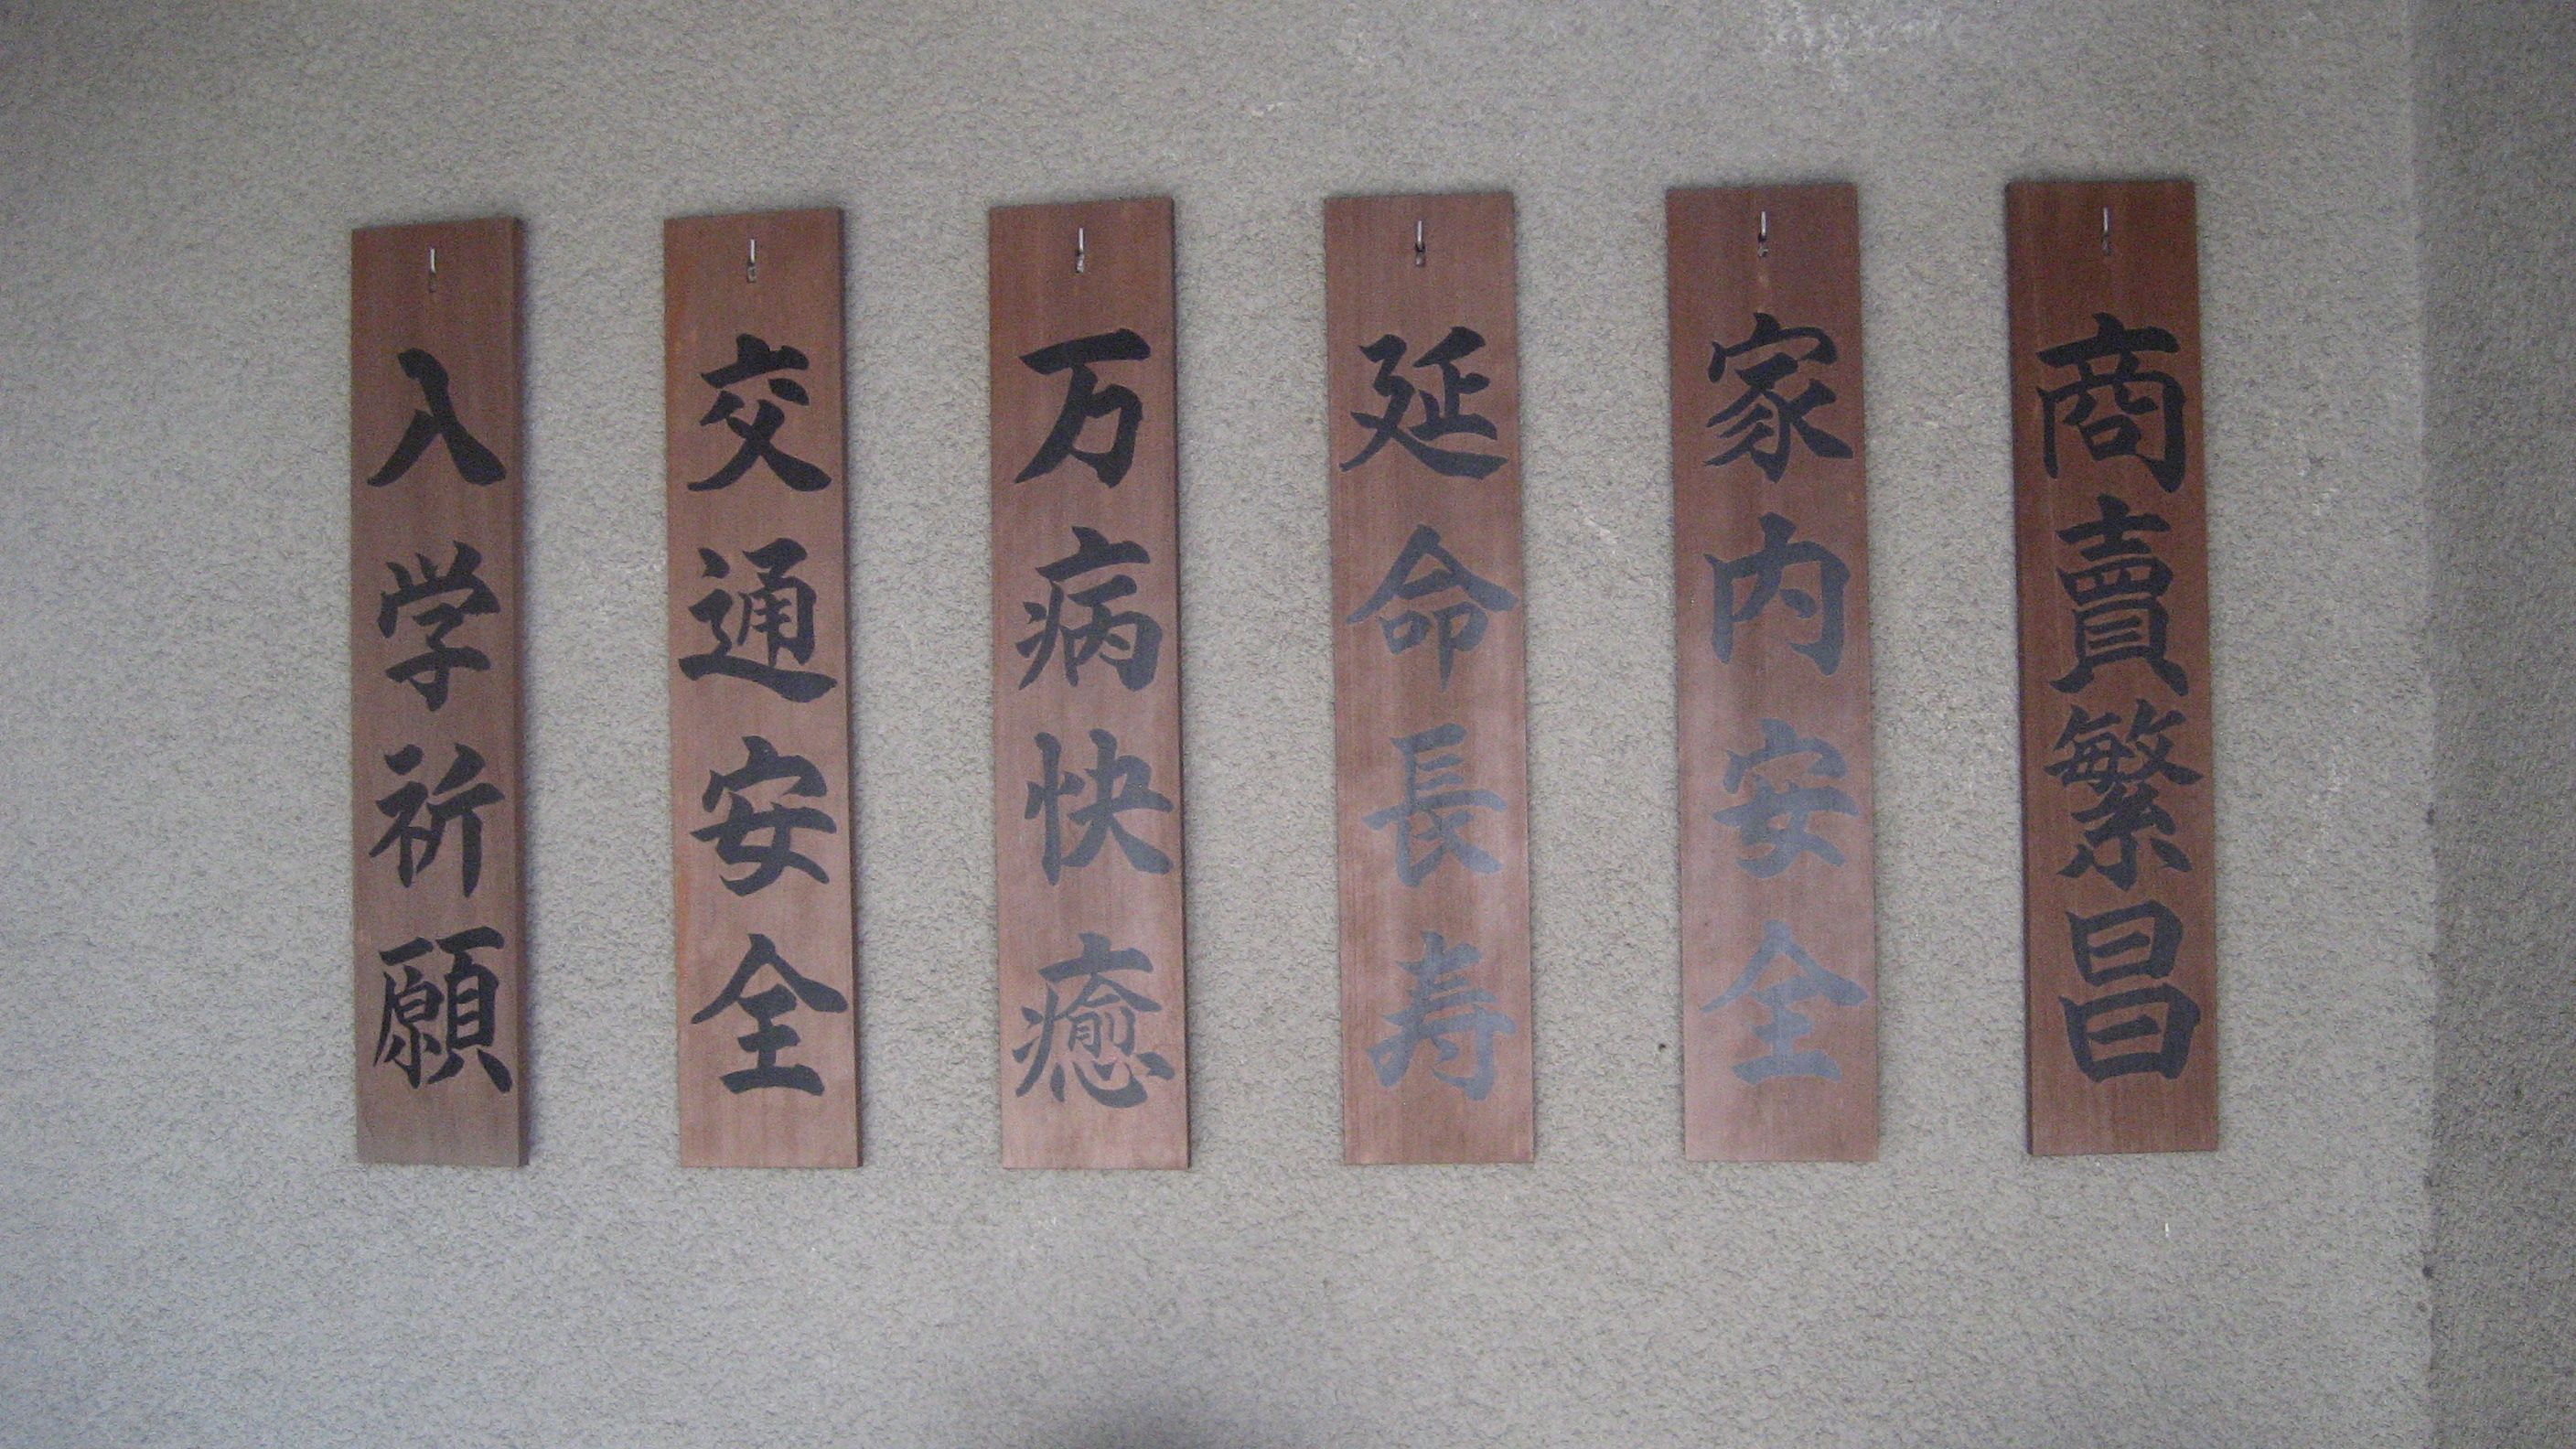 商賣繁昌
家内安全
延命長寿
万病快癒
交通安全
入学祈願